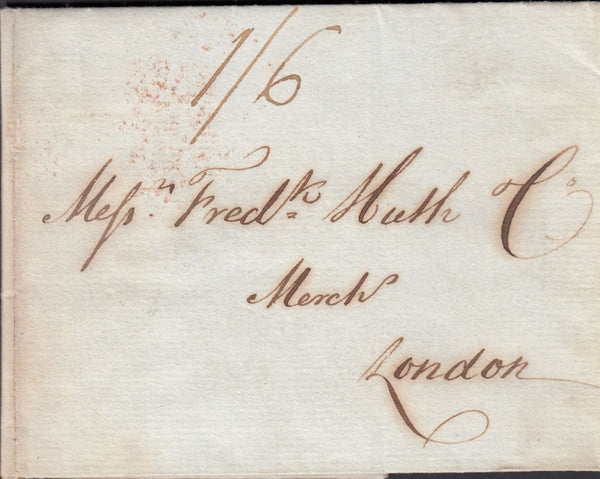 1/6
Messrs. Fredk. Huth Co.
Merchts
London